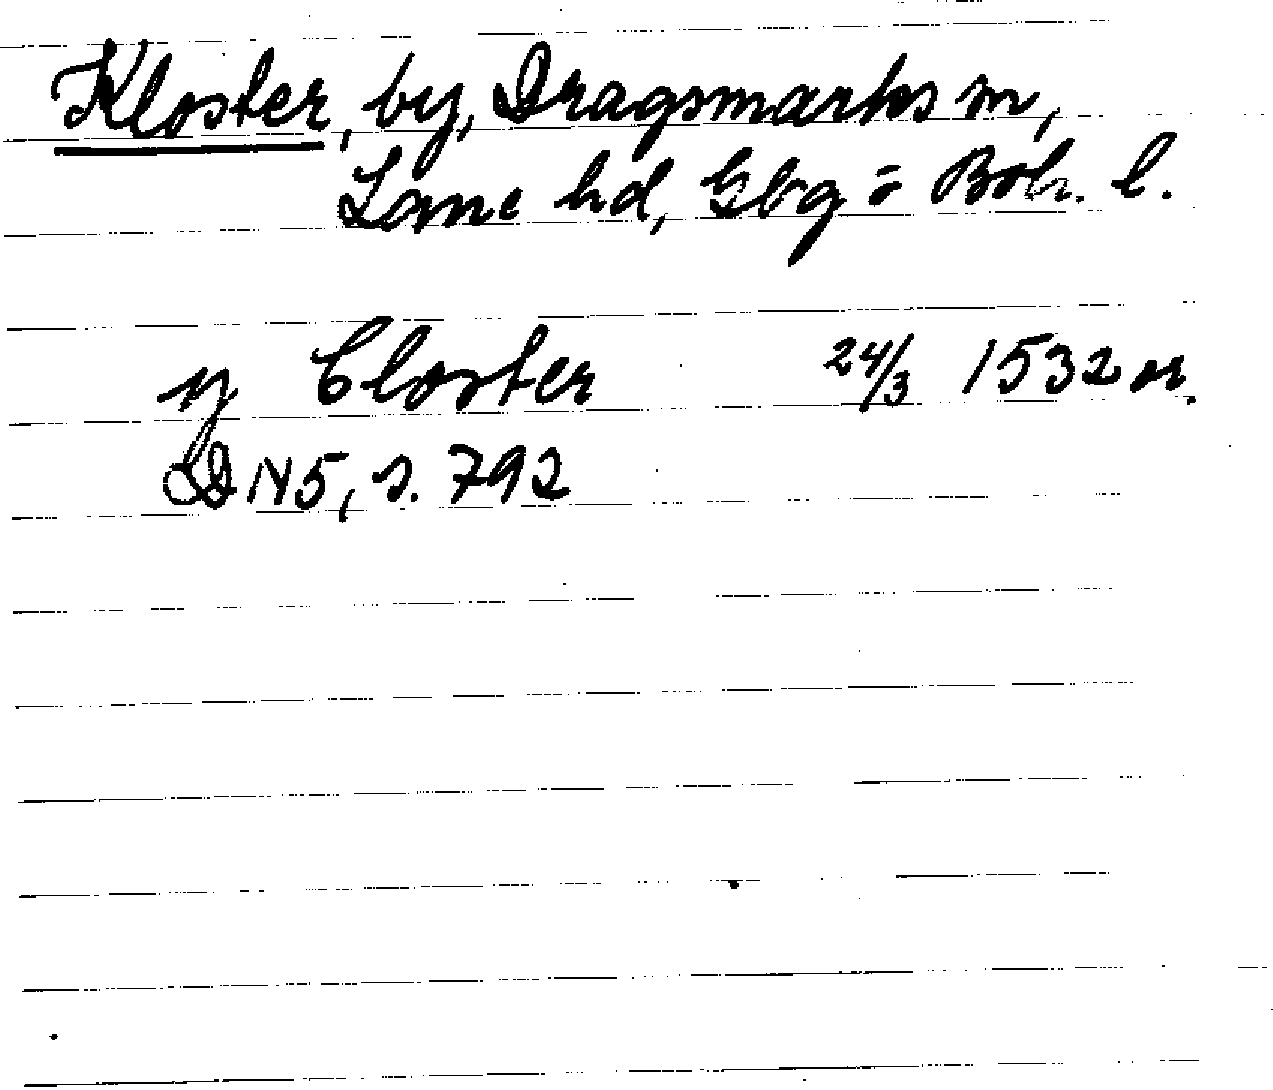 Kloster, by, Dragsmarks sn,
Lane hd, Gbg o Boh. l.
y Closter 24/3 1532 or.
DN 5, s. 792